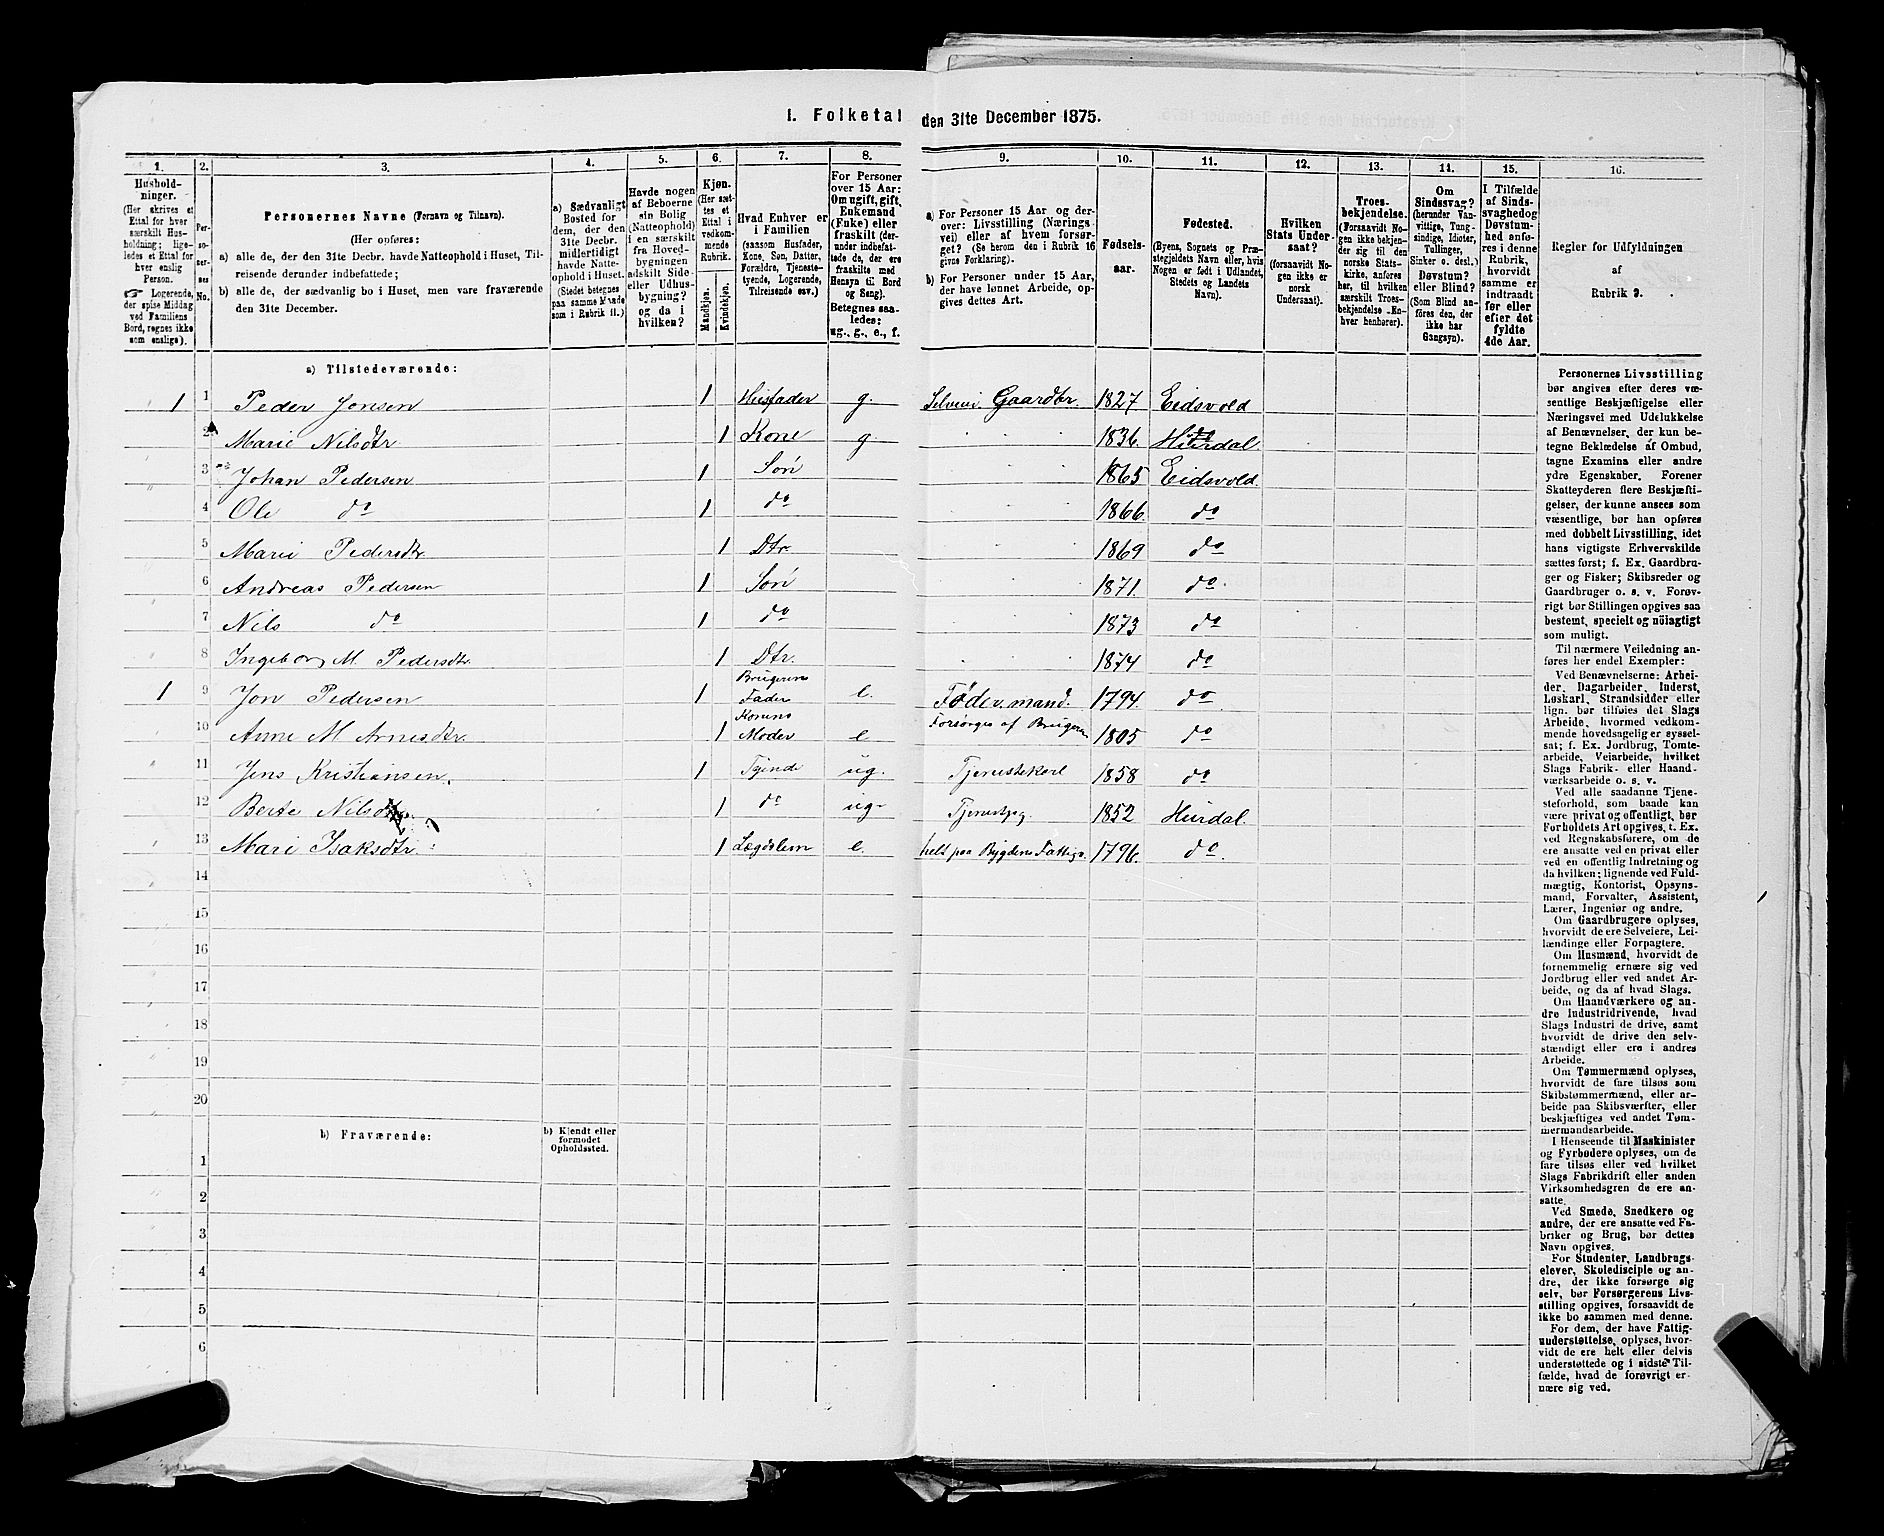 I. Folketal den 31te December 1875.
1. 2. 3. 4. 5. 6. 7. 8. 9. 10. 11. 12. 13. 14. 15. 16.
Husholdninger.
(Her skrives et
Ettal for hver
særskilt Hus-
holdning; lige-
ledes et Ettal for
hver enslig
Person.
☞ Logerende,
der spise Middag
ved Familiens
Bord, regnes ikke
som enslige).
Per-
so-
ner-
nes
No.
Personernes Navne (Fornavn og Tilnavn).
(Her opføres:
a) alle de, der den 31te Decbr. havde Natteophold i Huset, Til-
reisende derunder indbefattede;
b) alle de, der sædvanlig bo i Huset, men vare fraværende
den 31te December.
a) Sædvanligt
Bosted for
dem, der den
31te Decbr.
midlertidigt
havde Natte-
ophold i Huset.
(Stedet betegnes
paa samme Maade
som i Rubrik 11.)
Havde nogen
af Beboerne
sin Bolig
(Natteophold)
i en særskilt
fra Hoved-
bygningen
adskilt Side-
eller Udhus-
bygning?
og da i
hvilken?
Kjøn.
(Her sæt-
tes et
Ettal i
vedkom-
mende
Rubrik.
Mandkjøn.
Kvindekjøn.
Hvad Enhver er
i Familien
(saasom Husfader,
Kone, Søn, Datter,
Forældre, Tjeneste-
tyende, Logerende,
Tilreisende osv.)
For Personer
over 15 Aar:
Om ugift, gift,
Enkemand
(Enke) eller
fraskilt (der-
under indbefat-
tede de, der ere
fraskilte med
Hensyn til Bord
og Seng).
Betegnes saa-
ledes:
ug., g., e., f.
a) For Personer 15 Aar og der-
over: Livsstilling (Nærings-
vei) eller af hvem forsør-
get? (Se herom den i Rubrik 16
givne Forklaring).
b) For Personer under 15 Aar,
der have lønnet Arbeide, op-
gives dettes Art.
Fødsels-
aar.
Fødested.
(Byens, Sognets og Præ-
stegjeldets Navn eller, hvis
Nogen er født i Udlandet,
Stedets og Landets
Navn).
Hvilken
Stats Under-
saat?
(forsaavidt No-
gen ikke er
norsk
Undersaat).
Troes-
bekjendelse.
(Forsaavidt No-
gen ikke bekjen-
der sig til den
norske Stats-
kirke, anføres
her, til hvilken
særskilt Troes-
bekjendelse En-
hver henhører).
Om
Sindssvag?
(herunder Van-
vittige, Tung-
sindige, Idioter,
Tullinger,
Sinker o. desl.)
Døvstum?
eller Blind?
(Som Blind an-
føres den, der
ikke har
Gangsyn).
I Tilfælde
af Sinds-
svaghed og
Døvstum-
hed anfø-
res i denne
Rubrik,
hvorvidt
samme er
indtraadt
før eller
efter det
fyldte
4de Aar.
Regler for Udfyldningen
af
Rubrik 9.
a) Tilstedeværende:
1 1 Peder Jonsen 1 Husfader g. Selveii Gaardbr. 1827 Eidsvold
2 Marie Nilsdtr 1 Kone g 1836. Hurdal
3 Johan Pedersen 1 Søn 1865 Eidsvold
4 Ole do 1 do 1866. do
5 Marie Pedersdtr. 1 Dtr. 1869 do
6 Andreas Pedersen 1 Søn 1871. do.
7 Nils do 1 do 1873 do
8 Ingeborg M. Pedersdtr. 1 Dtr. 1874 do
1 9 Jon Pedersen 1 Brugerens Fader e. Føder.mand. 1794. do
10 Anne M. Arnesdtr. 1 Konens Moder e Forsørges af Brugeren 1805 do
11 Jens Kristiansen. 1 Tyende ug. Tjenestekarl 1858 do
12 Berte Nilsdtr. 1 do ug. Tjenestpig 1852 Hurdal.
13 Mari Isaksdtr. 1 Lægdslem e. helt paa Bygdens Fattigv. 1796. do.
14
15
16
17
18
19
20
b) Fraværende:
b) Kjendt eller
formodet
Opholdssted.
1
2
3
4
5
6
Personernes Livsstilling
bør angives efter deres væ-
sentlige Beskjæftigelse eller
Næringsvei med Udelukkelse
af Benævnelser, der kun be-
tegne Beklædelse af Ombud,
tagne Examina eller andre
ydre Egenskaber. Forener
Skatteyderen flere Beskjæfti-
gelser, der kunne ansees som
væsentlige, bør han opføres
med dobbelt Livsstilling, idet
hans vigtigste Erhvervskilde
sættes først; f. Ex. Gaardbru-
ger og Fisker; Skibsreder og
Gaardbruger o. s. v. Forøv-
rigt bør Stillingen opgives saa
bestemt, specielt og nöiagtigt
som muligt.
Til nærmere Veiledning an-
føres her endel Exempler:
Ved Benævnelserne: Arbei-
der, Dagarbeider, Inderst,
Løskarl, Strandsidder eller
lign. bør tilføies det Slags
Arbeide, hvormed vedkom-
mende hovedsagelig er syssel-
sat; f. Ex. Jordbrug, Tomte-
arbeide, Veiarbeide, hvilket
Slags Fabrik- eller Haand-
værksarbeide o. s. v.
Ved alle saadanne Tjene-
steforhold, som baade kan
være privat og offentligt, bør
Forholdets Art opgives, t. Ex.
ved Regnskabsførere, om de
ere ansatte ved en privat eller
ved en offentlig Indretning og
da hvilken; lignende ved Fuld-
mægtig, Kontorist, Opsyns-
mand, Forvalter, Assistent,
Lærer, Ingeniør og andre.
Om Gaardbrugere oplyses,
hvorvidt de ere Selveiere, Lei-
lændinge eller Forpagtere.
Om Husmænd, hvorvidt de
fornemmelig ernære sig ved
Jordbrug eller ved andet Ar-
beide, og da af hvad Slags.
Om Haandværkere og an-
dre Industridrivende, hvad
Slags Industri de drive, samt
hvorvidt de drive den selv-
stændigt eller ere i andres
Arbeide.
Om Tømmermænd oplyses,
hvorvidt de fare tilsøs som
Skibstømmermænd, eller ar-
beide paa Skibsværfter, eller
beskjæftiges ved andet Tøm-
mermandsarbeide.
I Henseende til Maskinister
og Fyrbødere oplyses, om de
fare tilsøs eller ved hvilket
Slags Fabrikdrift eller anden
Virksomhedsgren de ere an-
satte.
Ved Smede, Snedkere og
andre, der ere ansatte ved Fa-
briker og Brug, bør dettes
Navn opgives.
For Studenter, Landbrugs-
elever, Skoledisciple og an-
dre, der ikke forsørge sig
selv, bør Forsørgerens Livs-
stilling opgives, forsaavidt de
ikke bo sammen med denne.
For dem, der have Fattig-
understøttelse, oplyses, hvor-
vidt de ere helt eller delvis
understøttede og i sidste Til-
fælde, hvad de forøvrigt er-
nære sig ved.